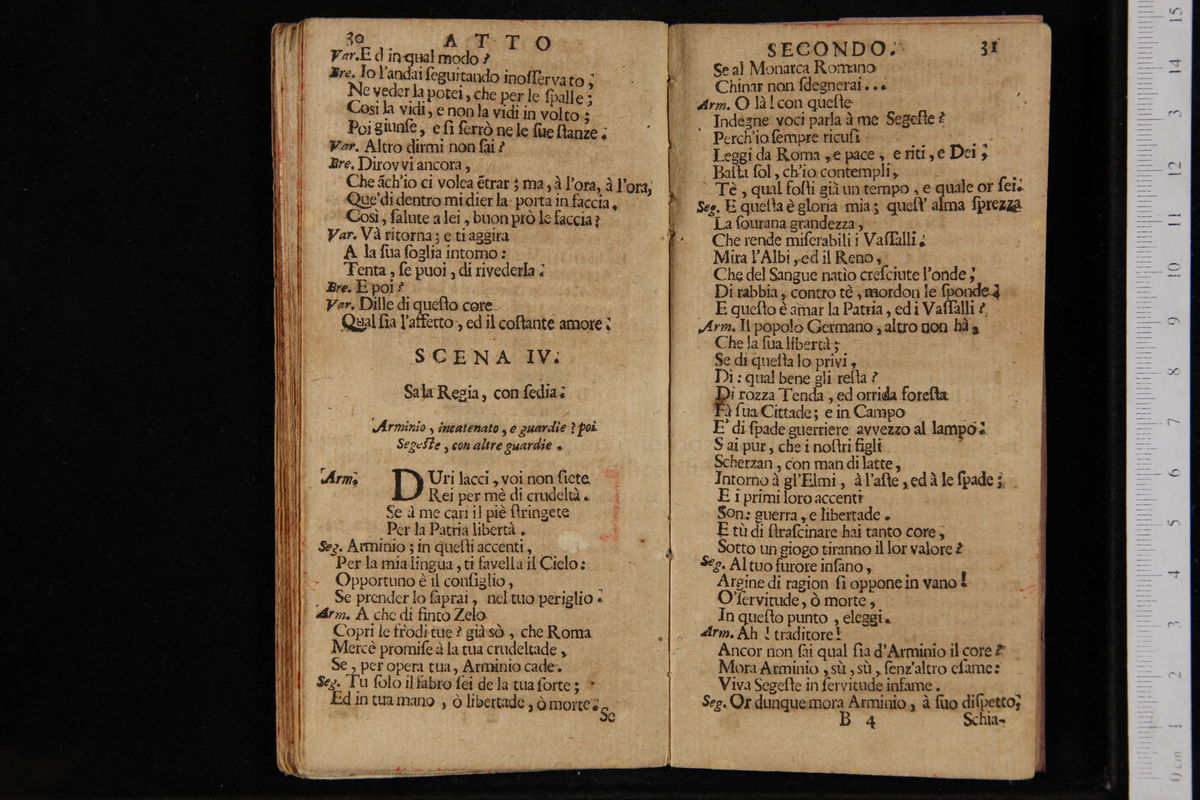 30 ATTO
Var. E d in qual modo?
Bre. Io l'andai ſeguitando inoſſervato;
Ne veder la potei, che per le ſpalle;
Coſi la vidi, e non la vidi in volto;
Poi giunſe, e ſi ſerrò ne le ſue ſtanze.
Var. Altro dirmi non ſai?
Bre. Dirovvi ancora,
Che āch'io ci volea ētrar; ma, à l'ora, à l'ora,
Que'di dentro mi dier la porta in faccia.
Coſi, ſalute a lei, buon prò le faccia?
Var. Và ritorna; e ti aggira
A la ſua ſoglia intorno:
Tenta, ſe puoi, di rivederla.
Bre. E poi?
Var. Dille di queſto core
Qual ſia l'affetto, ed il coſtante amore.
SCENA IV.
Sala Regia, con ſedia.
Arminio, incatenato, e guardie; poi
Segeſte, con altre guardie.
Arm. DUri lacci, voi non ſiete
Rei per mè di crudeltà.
Se à me cari il piè ſtringete
Per la Patria libertà.
Seg. Arminio; in queſti accenti,
Per la mia lingua, ti favella il Cielo:
Opportuno è il conſiglio,
Se prender lo ſaprai, nel tuo periglio.
Arm. A che di finto Zelo
Copri le frodi tue? già sò, che Roma
Mercè promiſe à la tua crudeltade,
Se, per opera tua, Arminio cade.
Seg. Tu ſolo il fabro ſei de la tua ſorte;
Ed in tua mano, ò libertade, ò morte.
Se
SECONDO. 31
Se al Monarca Romano
Chinar non ſdegnerai...
Arm. O là! con queſte
Indegne voci parla à me Segeſte?
Perch'io ſempre ricuſi
Leggi da Roma, e pace, e riti, e Dei;
Baſta ſol, ch'io contempli,
Tè, qual foſti già un tempo, e quale or ſei.
Seg. E queſta è gloria mia; queſt' alma ſprezza
La ſourana grandezza,
Che rende miſerabili i Vaſſalli.
Mira l'Albi, ed il Reno,
Che del Sangue natìo creſciute l'onde;
Di rabbia, contro tè, mordon le ſponde.
E queſto è amar la Patria, ed i Vaſſalli?
Arm. Il popolo Germano, altro non hà,
Che la ſua libertà;
Se di queſta lo privi,
Dì: qual bene gli reſta?
Di rozza Tenda, ed orrida foreſta
Fà ſua Cittade; e in Campo
E' di ſpade guerriere avvezzo al lampo.
S ai pur, che i noſtri figli
Scherzan, con man di latte,
Intorno à gl'Elmi, à l'aſte, ed à le ſpade;
E i primi loro accenti
Son: guerra, e libertade.
E tù di ſtraſcinare hai tanto core,
Sotto un giogo tiranno il lor valore?
Seg. Al tuo furore inſano,
Argine di ragion ſi oppone in vano!
O'ſervitude, ò morte,
In queſto punto, eleggi.
Arm. Ah! traditore!
Ancor non ſai qual ſia d'Arminio il core?
Mora Arminio, sù, sù, ſenz'altro eſame:
Viva Segeſte in ſervitude infame.
Seg. Or dunque mora Arminio, à ſuo diſpetto;
B 4 Schia-